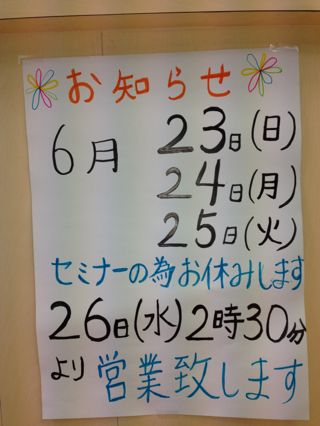 お知らせ
6月 23日(日)
24日(月)
25日(火)
セミナーの為お休みします
26日(水)2時30分
より営業致します